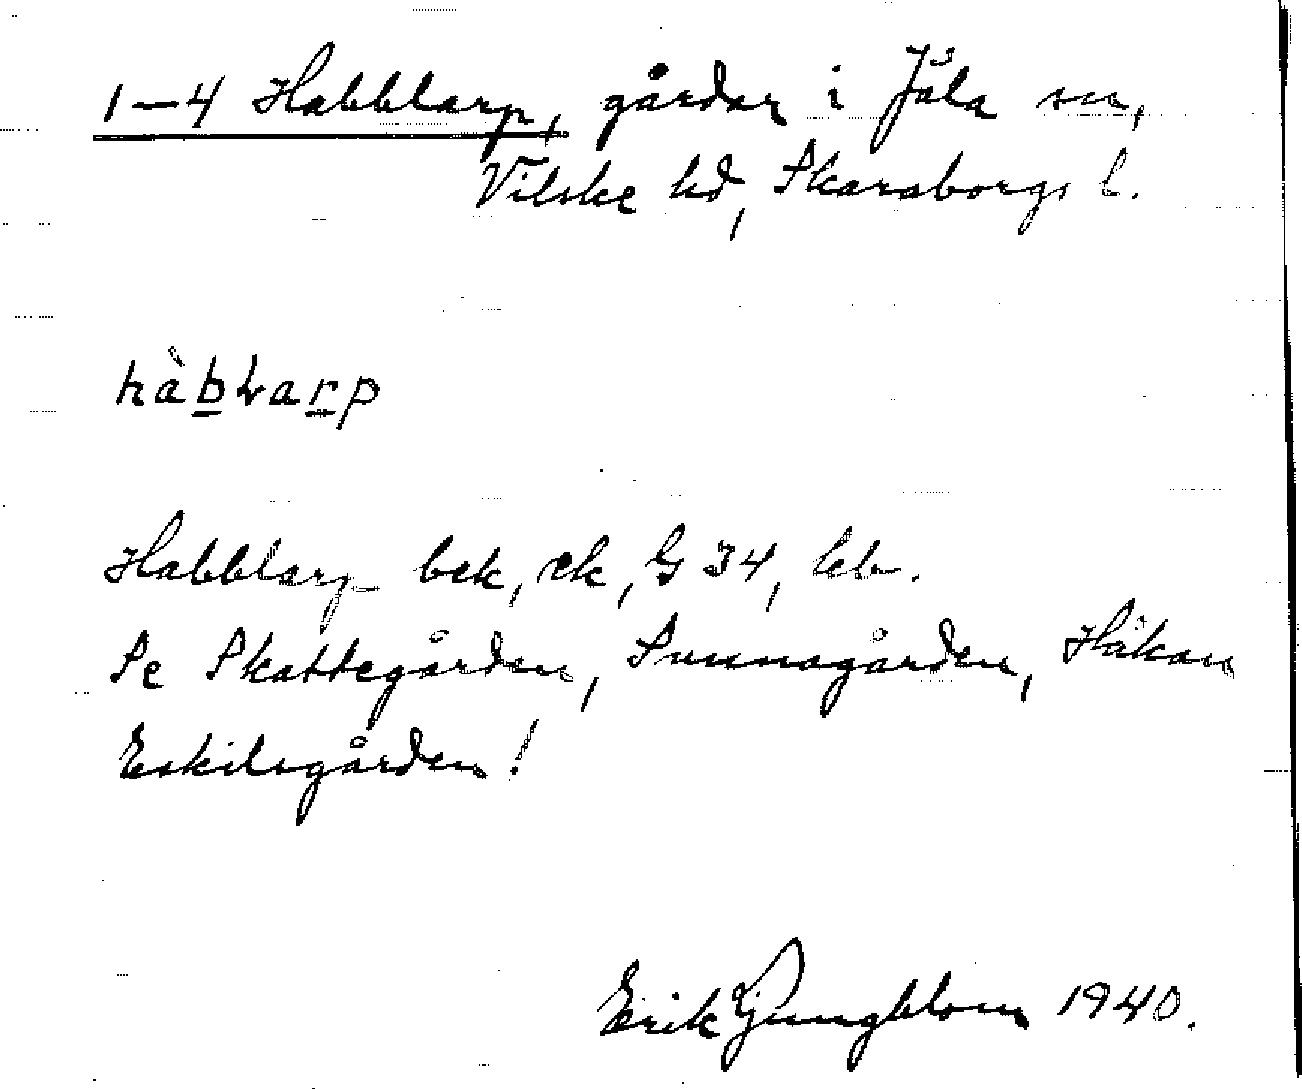 1–4 Habblarp, gårdar i Jäla sn,
Vilske hd, Skaraborgs l.
hàbLarp
Habblarp bek, ek, G 34, kb.
Se Skattegården, Sunnagården, Håkan
Eskilsgården!
Erik Ljungblom 1940.